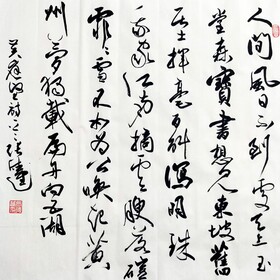 人間風日不到處天上玉
堂森寶書想見東坡舊
居士揮毫百斛瀉明珠
我家江南摘雲腴落磑
霏霏雪不如為公喚起黃
州夢獨載扁舟向五湖
黃庭堅詩